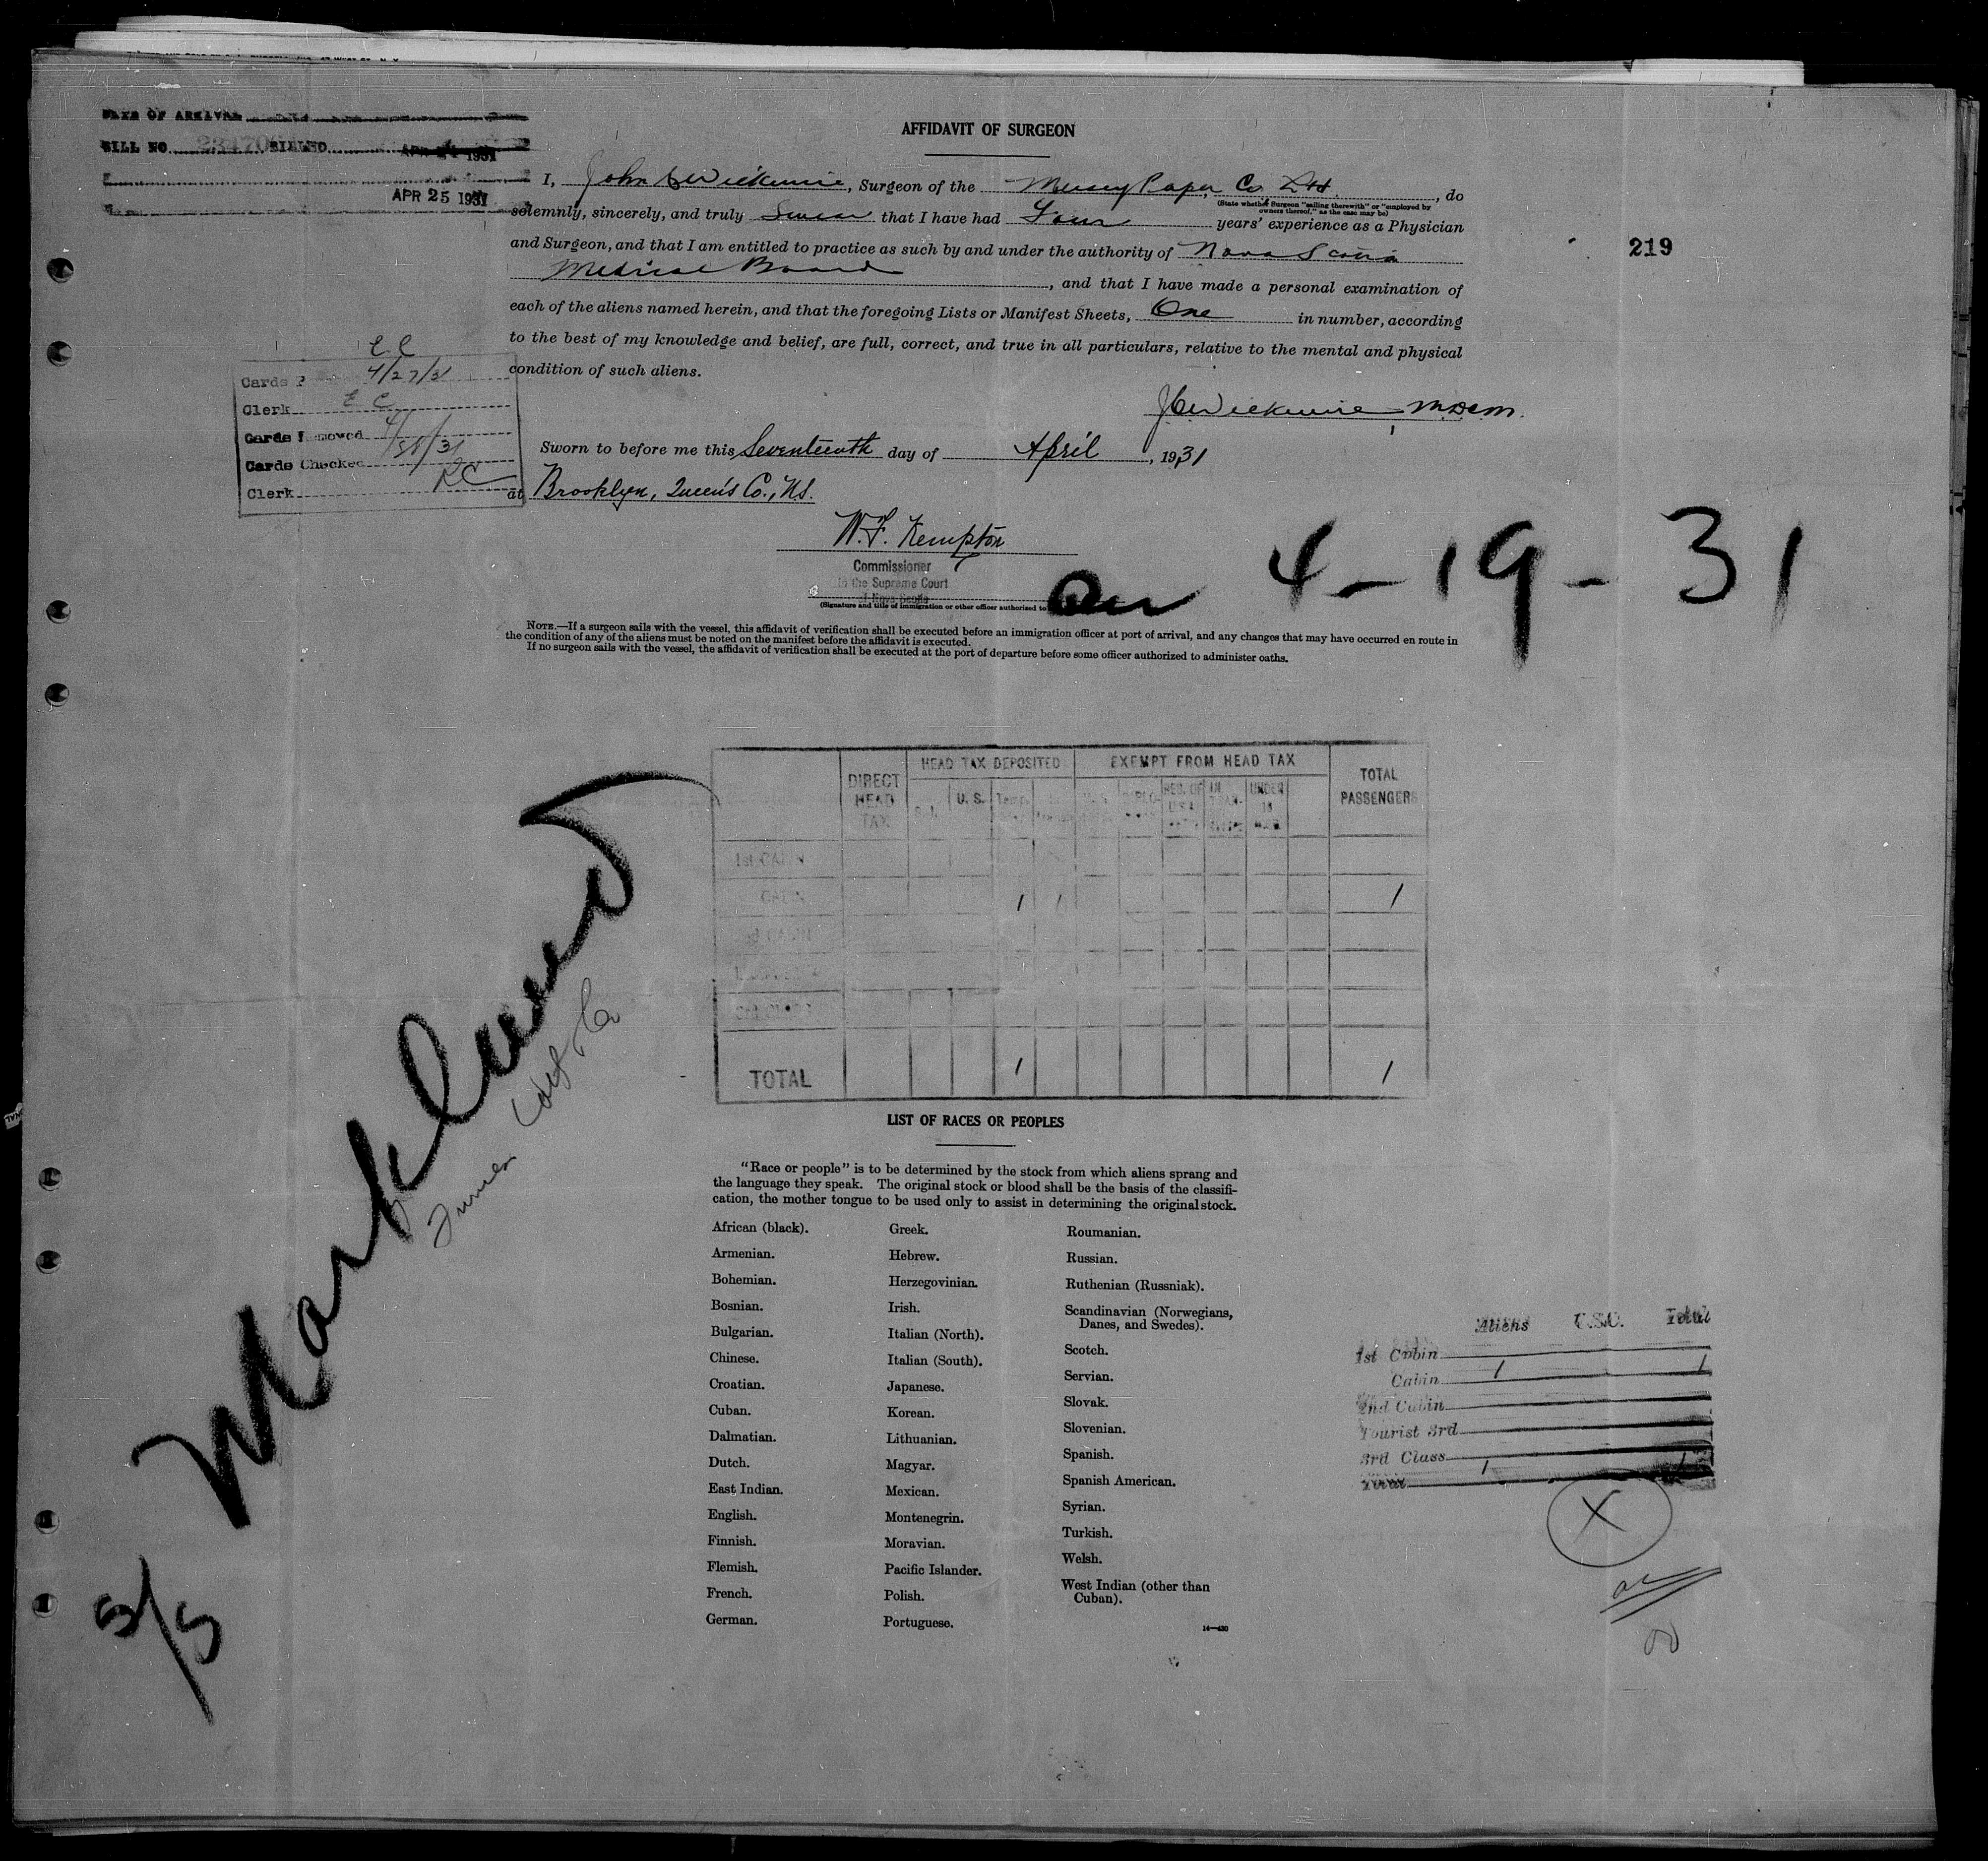 DATE OF ARRIVAL
BILL NO. 23470 BILLED APR 1931
APR 25 1931
AFFIDAVIT OF SURGEON
I, John C Wickwire, Surgeon of the Mersey Paper Co Ltd., do
(State whether Surgeon "sailing therewith" or "employed by
owners thereof," as the case may be)
solemnly, sincerely, and truly Swear that I have had Four years' experience as a Physician
and Surgeon, and that I am entitled to practice as such by and under the authority of Nova Scotia
Medical Board, and that I have made a personal examination of
each of the aliens named herein, and that the foregoing Lists or Manifest Sheets, One in number, according
to the best of my knowledge and belief, are full, correct, and true in all particulars, relative to the mental and physical
condition of such aliens.
219
Cards P 4/27/31
Clerk E C
Cards Removed
Cards Checked
Clerk RC
JC Wickwire M.D.C.M.
Sworn to before me this Seventeenth day of April, 1931
at Brooklyn, Queen's Co., N.S.
W.F. Kempton
Commissioner
in the Supreme Court
of Nova Scotia
(Signature and title of immigration or other officer authorized to
4-19-31
NOTE.—If a surgeon sails with the vessel, this affidavit of verification shall be executed before an immigration officer at port of arrival, and any changes that may have occurred en route in
the condition of any of the aliens must be noted on the manifest before the affidavit is executed.
If no surgeon sails with the vessel, the affidavit of verification shall be executed at the port of departure before some officer authorized to administer oaths.
DIRECT HEAD TAX
HEAD TAX DEPOSITED
EXEMPT FROM HEAD TAX
TOTAL PASSENGERS
U. S. Temp.
RES. OF U.S.A. IN TRAN- UNDER 16
1st CABIN
CABIN 1 1 1
TOTAL 1 1
Markland
LIST OF RACES OR PEOPLES
"Race or people" is to be determined by the stock from which aliens sprang and
the language they speak. The original stock or blood shall be the basis of the classifi-
cation, the mother tongue to be used only to assist in determining the original stock.
African (black).
Armenian.
Bohemian.
Bosnian.
Bulgarian.
Chinese.
Croatian.
Cuban.
Dalmatian.
Dutch.
East Indian.
English.
Finnish.
Flemish.
French.
German.
Greek.
Hebrew.
Herzegovinian.
Irish.
Italian (North).
Italian (South).
Japanese.
Korean.
Lithuanian.
Magyar.
Mexican.
Montenegrin.
Moravian.
Pacific Islander.
Polish.
Portuguese.
Roumanian.
Russian.
Ruthenian (Russniak).
Scandinavian (Norwegians,
Danes, and Swedes).
Scotch.
Servian.
Slovak.
Slovenian.
Spanish.
Spanish American.
Syrian.
Turkish.
Welsh.
West Indian (other than
Cuban).
14—430
Aliens U.S.C. Total
1st Cabin
Cabin 1 1
2nd Cabin
Tourist 3rd
3rd Class
Total 1 1
X
5/5